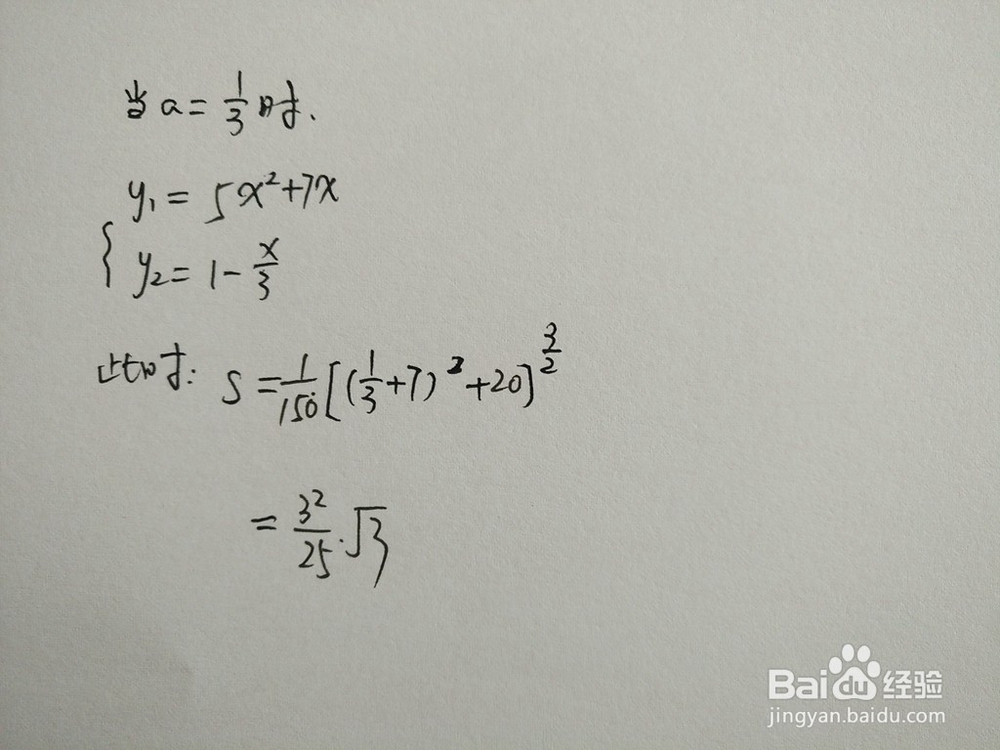 当 a = 1/3 时.
y₁ = 5x²+7x
{ y₂ = 1 - x/3
此时: S = 1/150 [(1/3+7)²+20]^(3/2)
= 3²/25 · √3
Baidu 经验
jingyan.baidu.com